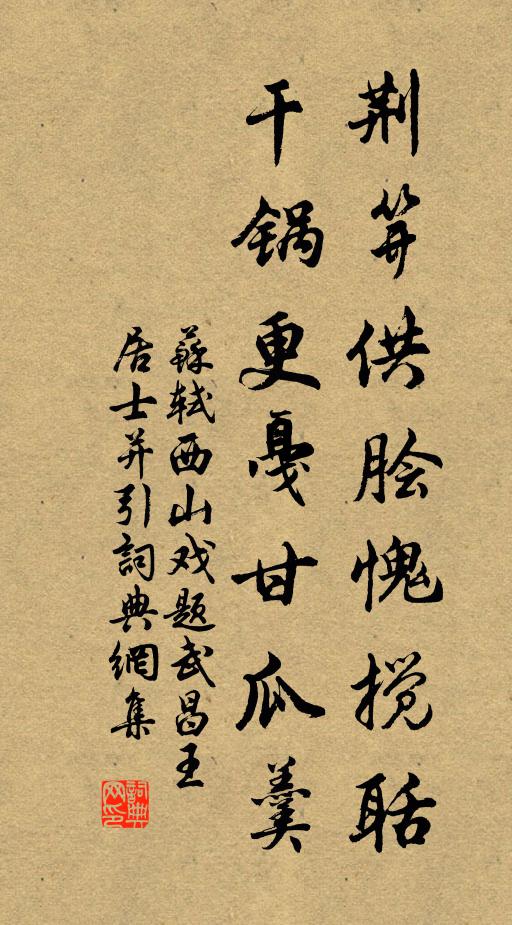 荆笄供脍愧搅聒
干锅更戛甘瓜羹
蘇轼西山戏题武昌王
居士并引詞典網集
詞典
网印